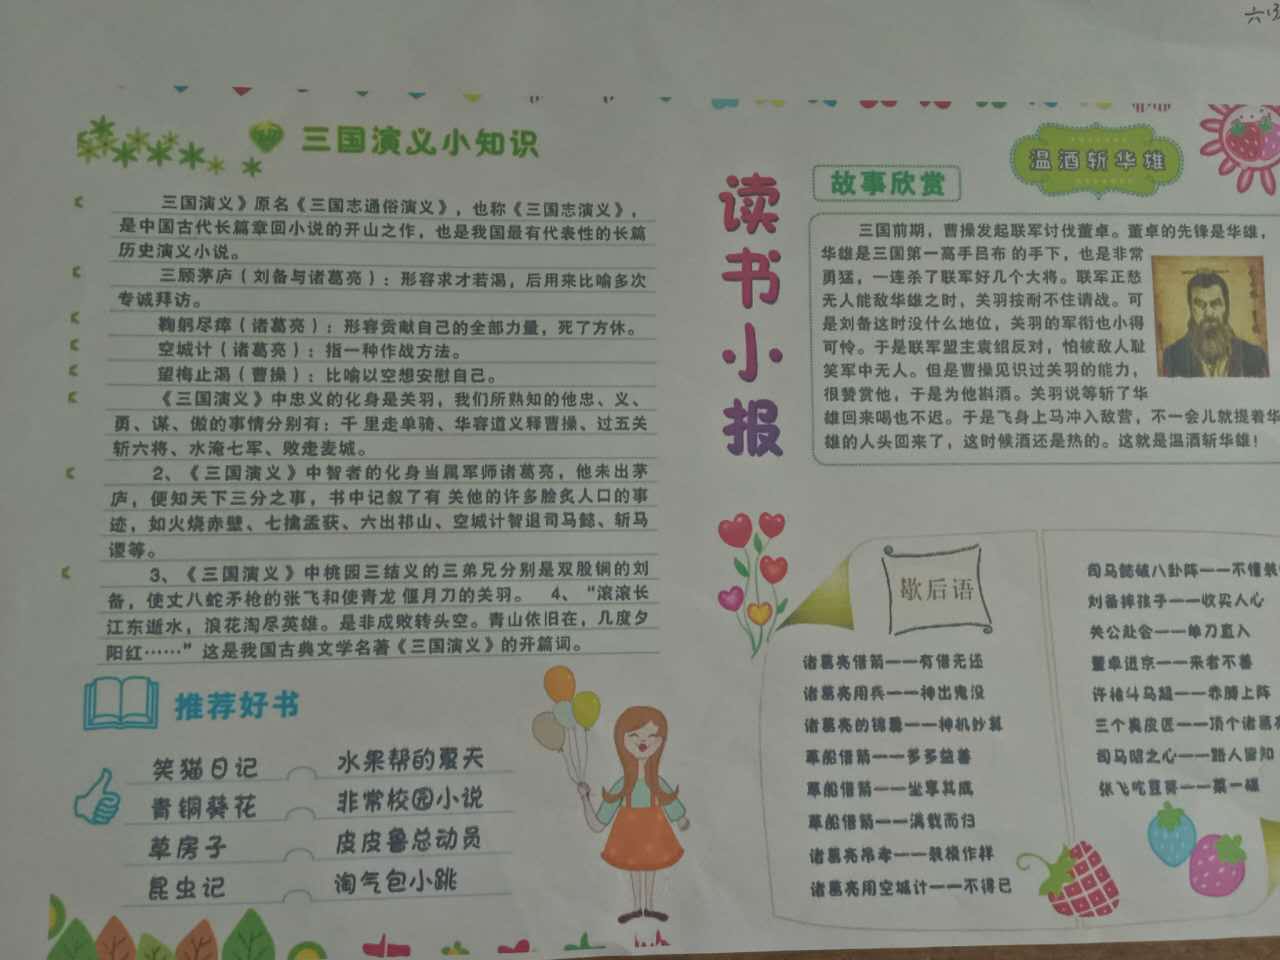 三国演义小知识
三国演义》原名《三国志通俗演义》，也称《三国志演义》，
是中国古代长篇章回小说的开山之作，也是我国最有代表性的长篇
历史演义小说。
三顾茅庐（刘备与诸葛亮）：形容求才若渴，后用来比喻多次
专诚拜访。
鞠躬尽瘁（诸葛亮）：形容贡献自己的全部力量，死了方休。
空城计（诸葛亮）：指一种作战方法。
望梅止渴（曹操）：比喻以空想安慰自己。
《三国演义》中忠义的化身是关羽，我们所熟知的他忠、义、
勇、谋、傲的事情分别有：千里走单骑、华容道义释曹操、过五关
斩六将、水淹七军、败走麦城。
2、《三国演义》中智者的化身当属军师诸葛亮，他未出茅
庐，便知天下三分之事，书中记叙了有 关他的许多脍炙人口的事
迹，如火烧赤壁、七擒孟获、六出祁山、空城计智退司马懿、斩马
谡等。
3、《三国演义》中桃园三结义的三弟兄分别是双股锏的刘
备，使丈八蛇矛枪的张飞和使青龙 偃月刀的关羽。 4、“滚滚长
江东逝水，浪花淘尽英雄。是非成败转头空。青山依旧在，几度夕
阳红……”这是我国古典文学名著《三国演义》的开篇词。
推荐好书
笑猫日记 水果帮的夏天
青铜葵花 非常校园小说
草房子 皮皮鲁总动员
昆虫记 淘气包小跳
读书小报
故事欣赏
温酒斩华雄
三国前期，曹操发起联军讨伐董卓。董卓的先锋是华雄，
华雄是三国第一高手吕布的手下，也是非常
勇猛，一连杀了联军好几个大将。联军正愁
无人能敌华雄之时，关羽按耐不住请战。可
是刘备这时没什么地位，关羽的军衔也小得
可怜。于是联军盟主袁绍反对，怕被敌人耻
笑军中无人。但是曹操见识过关羽的能力，
很赞赏他，于是为他斟酒。关羽说等斩了华
雄回来喝也不迟。于是飞身上马冲入敌营，不一会儿就提着华
雄的人头回来了，这时候酒还是热的。这就是温酒斩华雄！
歇后语
诸葛亮借箭——有借无还
诸葛亮用兵——神出鬼没
诸葛亮的锦囊——神机妙算
草船借箭——多多益善
草船借箭——坐享其成
草船借箭——满载而归
诸葛亮吊孝——装模作样
诸葛亮用空城计——不得已
司马懿破八卦阵——不懂装
刘备摔孩子——收买人心
关公赴会——单刀直入
董卓进京——来者不善
许褚斗马超——赤膊上阵
三个臭皮匠——顶个诸葛
司马昭之心——路人皆知
张飞吃豆芽——菜一碟